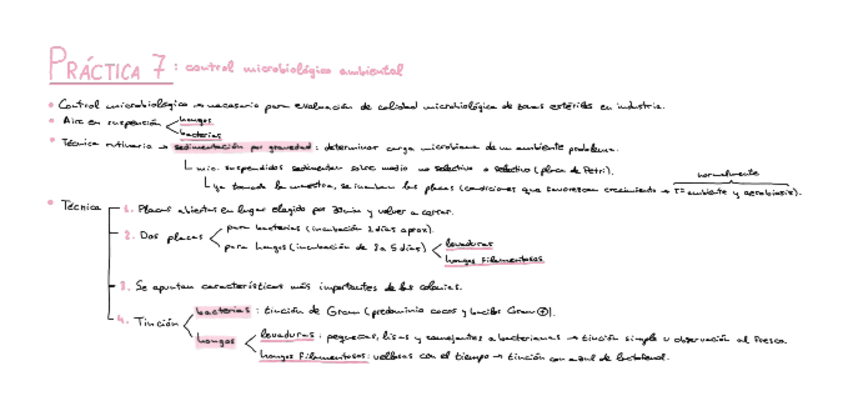 PRÁCTICA 7: control microbiológico ambiental
• Control microbiológico → necesario para evaluación de calidad microbiológica de zonas estériles en industria.
• Aire en suspensión < hongos
bacterias
• Técnica rutinaria → sedimentación por gravedad: determinar carga microbiana de un ambiente problema.
mic. suspendidos sedimentan sobre medio no selectivo o selectivo (placa de Petri).
normalmente
ya tomada la muestra, se incuban las placas (condiciones que favorezcan crecimiento → T= ambiente y aerobiosis).
• Técnica
1. Placas abiertas en lugar elegido por 30 min y volver a cerrar.
2. Dos placas < para bacterias (incubación 2 días aprox).
para hongos (incubación de 2 a 5 días) < levaduras
hongos filamentosos
3. Se apuntan características más importantes de las colonias.
4. Tinción < bacterias: tinción de Gram (predominio cocos y bacilos Gram ⊕).
hongos < levaduras: pequeñas, lisas y semejantes a bacterianas → tinción simple u observación al fresco.
hongos filamentosos: vellosas con el tiempo → tinción con azul de lactofenol.